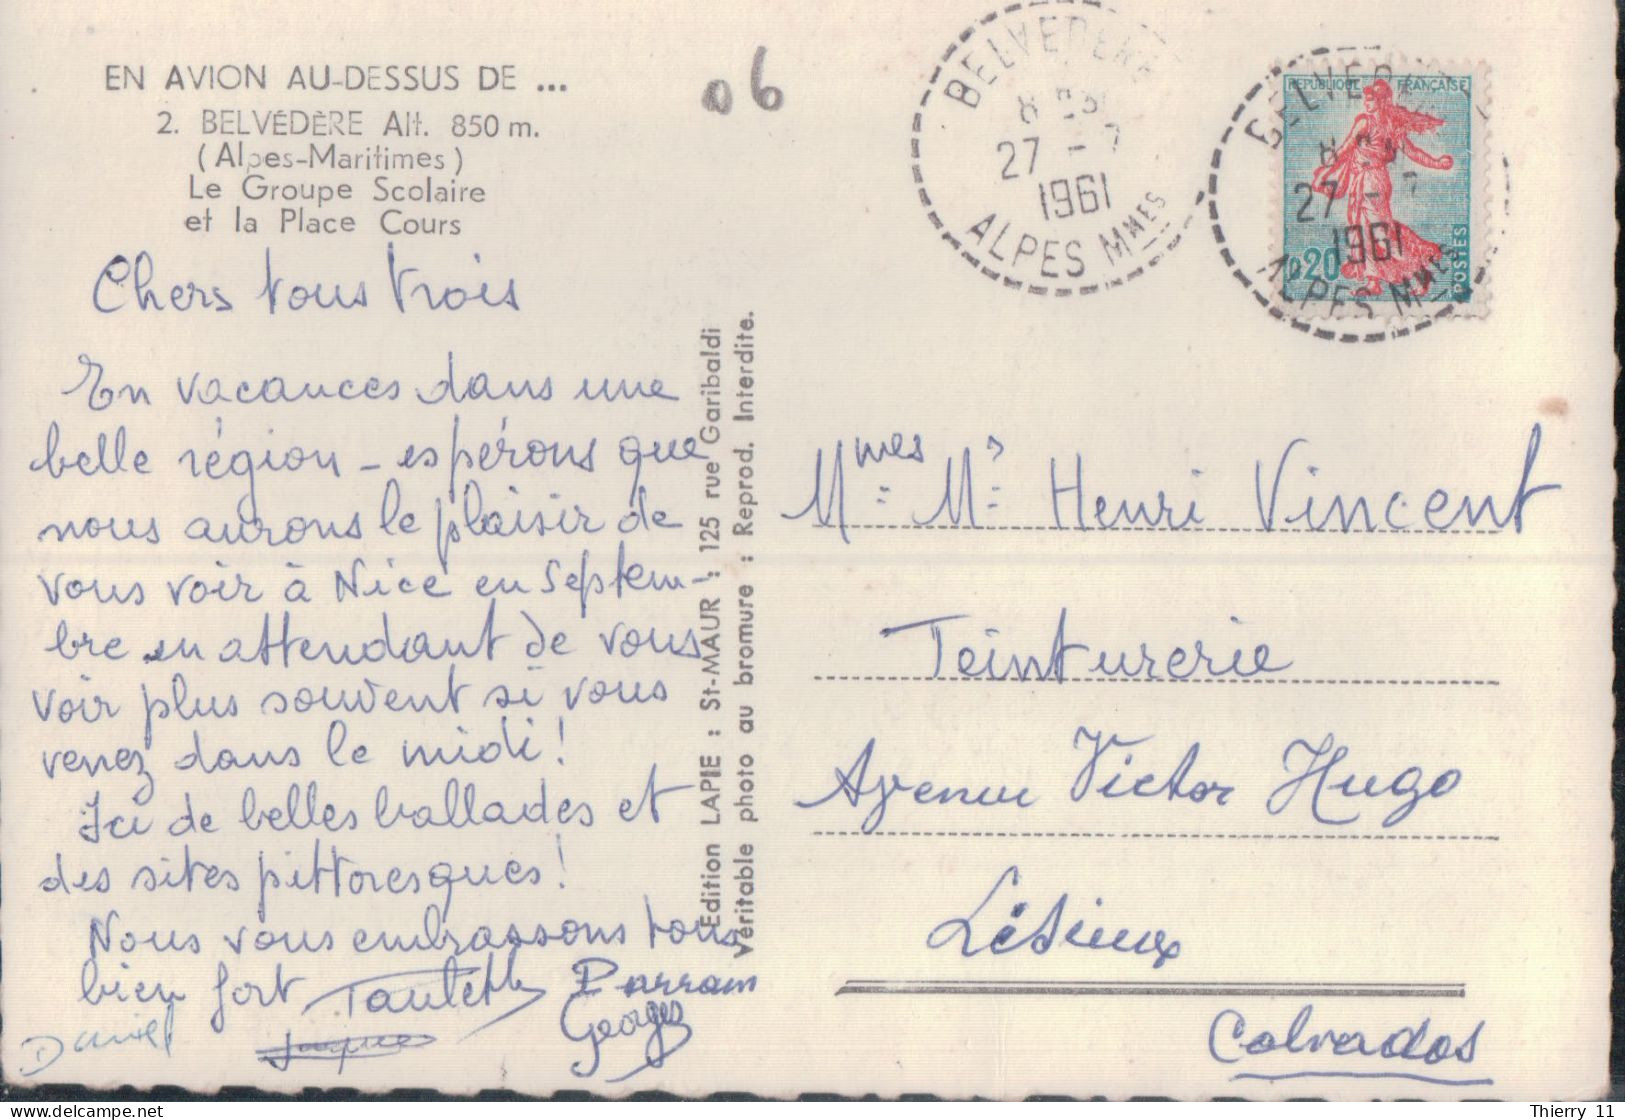 EN AVION AU-DESSUS DE ...
2. BELVÉDÈRE Alt. 850 m.
(Alpes-Maritimes)
Le Groupe Scolaire
et la Place Cours
06
BELVEDERE
27 - 7
1961
ALPES MMES
BELVEDERE
27 - 7
1961
ALPES MMES
REPUBLIQUE FRANÇAISE
0,20
POSTES
Chers tous trois
En vacances dans une
belle région - espérons que
nous aurons le plaisir de
vous voir à Nice en Septem-
bre en attendant de vous
voir plus souvent si vous
venez dans le midi !
Ici de belles ballades et
des sites pittoresques !
Nous vous embrassons tous
bien fort
Parrain
Georges
Daniel
Edition LAPIE : St-MAUR : 125 rue Garibaldi
Véritable photo au bromure : Reprod. Interdite.
Mmes Mrs Henri Vincent
Teinturerie
Avenue Victor Hugo
Calvados
Thierry 11